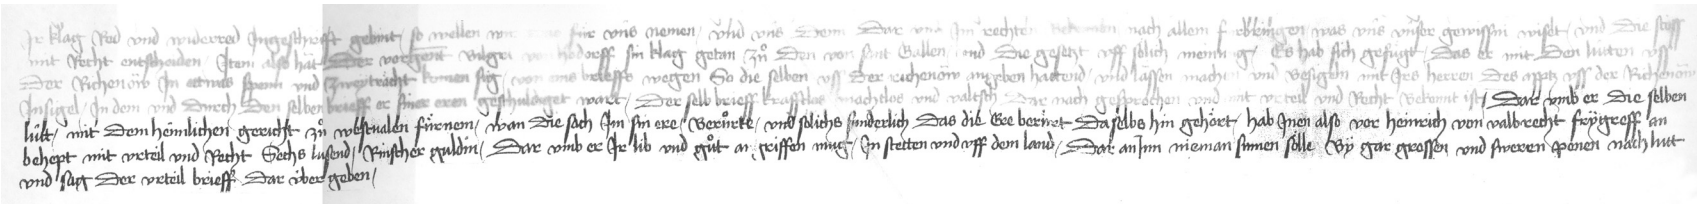 Ir klag Red vnd widerred Ingeschrifft gebint / so wellen wir für vnns nemen / vnd vns dem Dar vns Im rechten bekomen nach allem was vns vnser gewissni wiset / vnd die stöss
mit Recht entscheiden / Item also hät Der vorgent sin klag getan zů den von Sant Gallen / vnd die gesetzt vff sölich meinung / Es hab sich gefůgt / das er mit den lütten vss
der Richenöw In etwas spenn vnd zweyträcht komen sig / von eins brieffs wegen So die selben vss der richenöw hattend / vnd lassen machen vnd besiglen mit Irs herren des appts vss der Richenöw
Insigel / In dem vnd durch den selben brieff er siner eren geschuldiget wart / Der selb brieff krafftlos machtlos vnd valtsch dar nach gesprochen vnd mit vrteil vnd Recht bekennt ist / Dar vmb er die selben
lüt / mit dem heimlichen gericht zů westualen fürnem / wan die sach Im sin ere / berůrte / vnd solichs sunderlich das die Ere berůrt daselbs hin gehört / hab Inen also vor heinrich von valbrecht frÿgreff an
behept mit vrteil vnd Recht Sechs tusend / Rinscher guldin / Dar vmb er Ir lib vnd gůt an griffen mug / In stetten vnd vff dem land / Dar an Inn nieman sumen sölle Bÿ gar grossen vnd sweren penen nach lutt
vnd sag der vrteil brieff dar über geben /